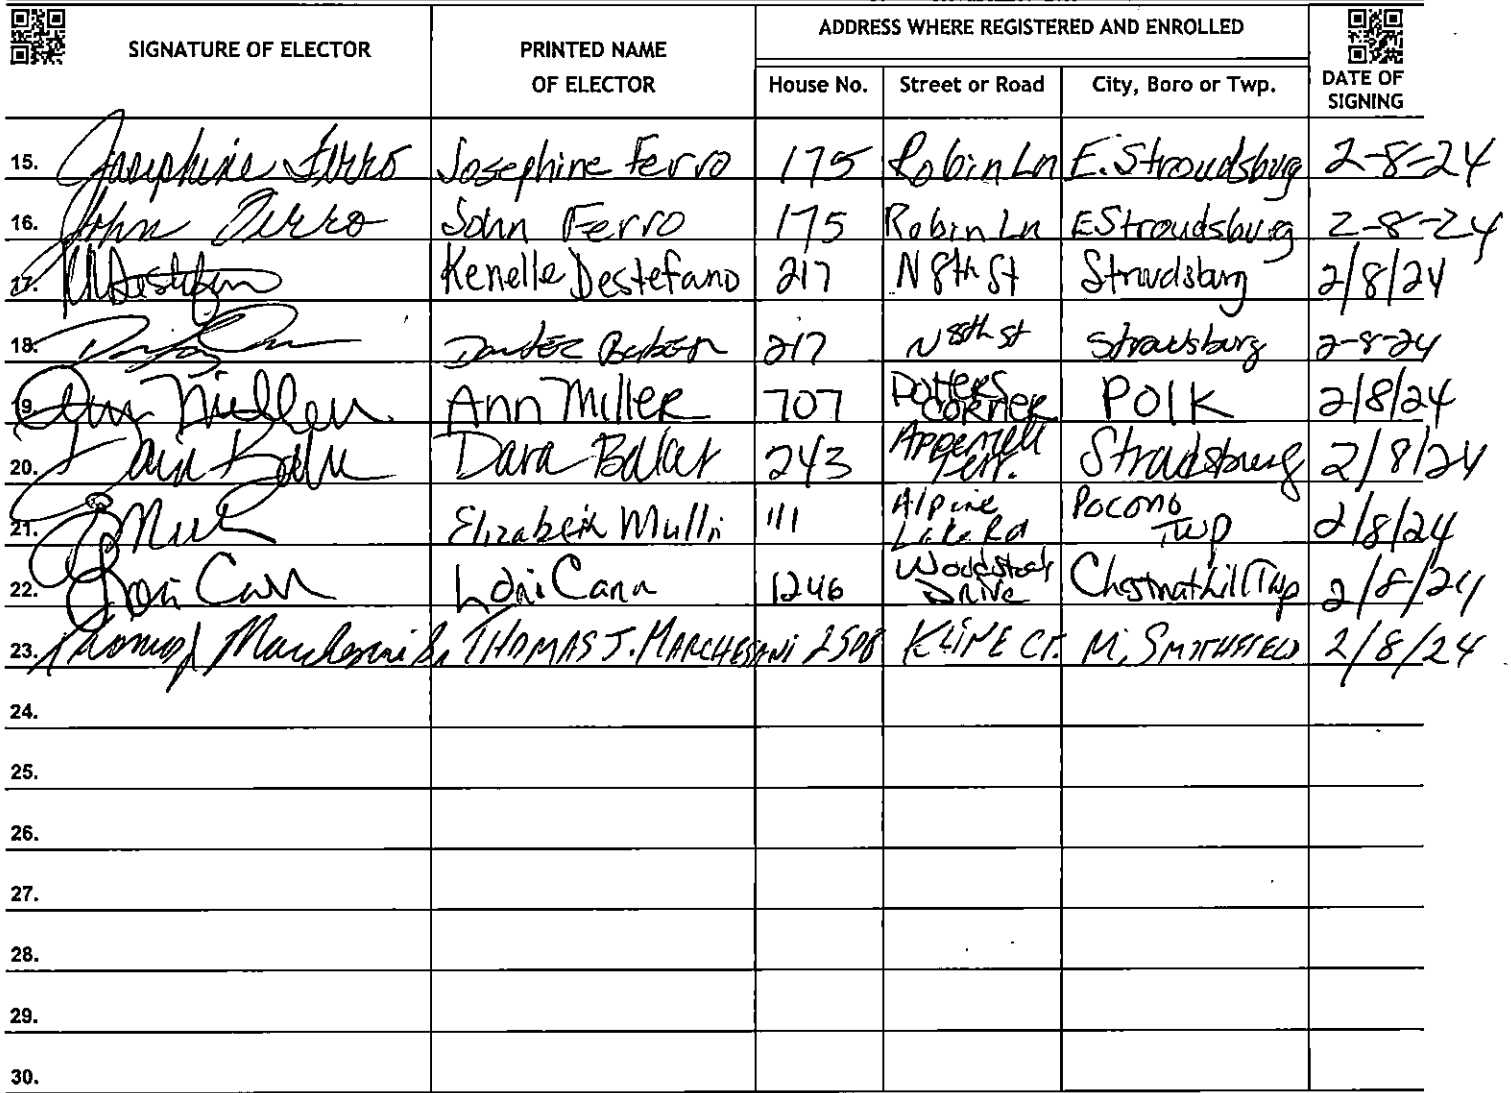 SIGNATURE OF ELECTOR PRINTED NAME OF ELECTOR ADDRESS WHERE REGISTERED AND ENROLLED DATE OF SIGNING
House No. Street or Road City, Boro or Twp.
15. Josephine Ferro Josephine Ferro 175 Robin Ln E. Stroudsburg 2-8-24
16. John Ferro John Ferro 175 Robin Ln E Stroudsburg 2-8-24
17. Kenelle Destefano 217 N 8th St Stroudsburg 2/8/24
18. 217 N 8th St Stroudsburg 2-8-24
19. Ann Miller Ann Miller 707 Potters Corner Polk 2/8/24
20. Dara 243 Appenzell Terr. Stroudsburg 2/8/24
21. Elizabeth Mulli 111 Alpine Lake Rd Pocono Twp 2/8/24
22. Lori Cann Lori Cann 1246 Woodstock Drive Chestnuthill Twp 2/8/24
23. THOMAS J. MARCHESANI 2508 KLINE CT. M. SMITHFIELD 2/8/24
24.
25.
26.
27.
28.
29.
30.